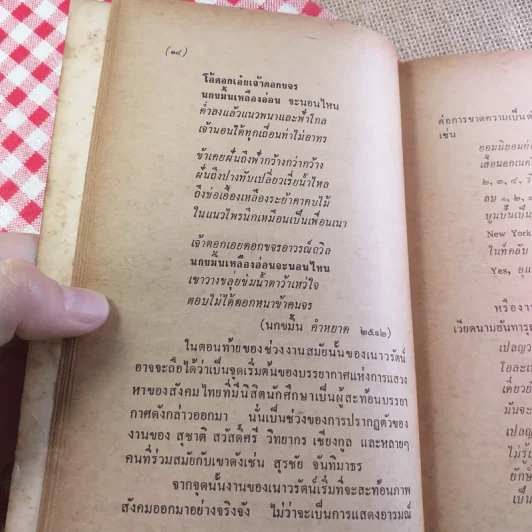 (๑๔)
โอ้ดอกเอ๋ยเจ้าดอกขจร
นกขมิ้นเหลืองอ่อน จะนอนไหน
ค่ำลงแล้วแนวพนาและฟ้าไกล
เจ้านอนได้ทุกเถื่อนท่าไม่อาทร
ข้าเคยฝันถึงฟ้ากว้างกว่ากว้าง
ฝันถึงปางทับเปลี่ยวเรี่ยน้ำไหล
ถึงช่อเอื้องเหลืองระย้าคาคบไม้
ในแนวไพรนึกเหมือนเป็นเพื่อนเนา
เจ้าดอกเอยดอกขจรอาวรณ์ถวิล
นกขมิ้นเหลืองอ่อนจะนอนไหน
เขาวางขลุ่ยข่มน้ำตาว้าเหว่ใจ
ตอบไม่ได้ดอกหนาข้าคนจร
(นกขมิ้น คำหยาด ๒๕๑๒)
ในตอนท้ายของช่วงงานสมัยนั้นของเนาวรัตน์
อาจจะถือได้ว่าเป็นจุดเริ่มต้นของบรรยากาศแห่งการแสวง
หาของสังคมไทยที่มีนิสิตนักศึกษาเป็นผู้สะท้อนบรรยา
กาศดังกล่าวออกมา นั่นเป็นช่วงของการปรากฏตัวของ
งานของ สุชาติ สวัสดิ์ศรี วิทยากร เชียงกูล และหลายๆ
คนที่ร่วมสมัยกับเขาดังเช่น สุรชัย จันทิมาธร
จากจุดนั้นงานของเนาวรัตน์เริ่มที่จะสะท้อนภาพ
สังคมออกมาอย่างจริงจัง ไม่ว่าจะเป็นการแสดงอารมณ์
ต่อการขาดความเป็น
เช่น
ยอมมิยอม
เสื้อนอก
๒, ๓, ๔,
ลบ ๑, ๒,
New York
ในท์คลับ
Yes,
หรืองาน
เวียดนามอันทารุณ
เปลญวน
มันจะ
เปลญ
ไม่รู้
ยักษ์
เป็น